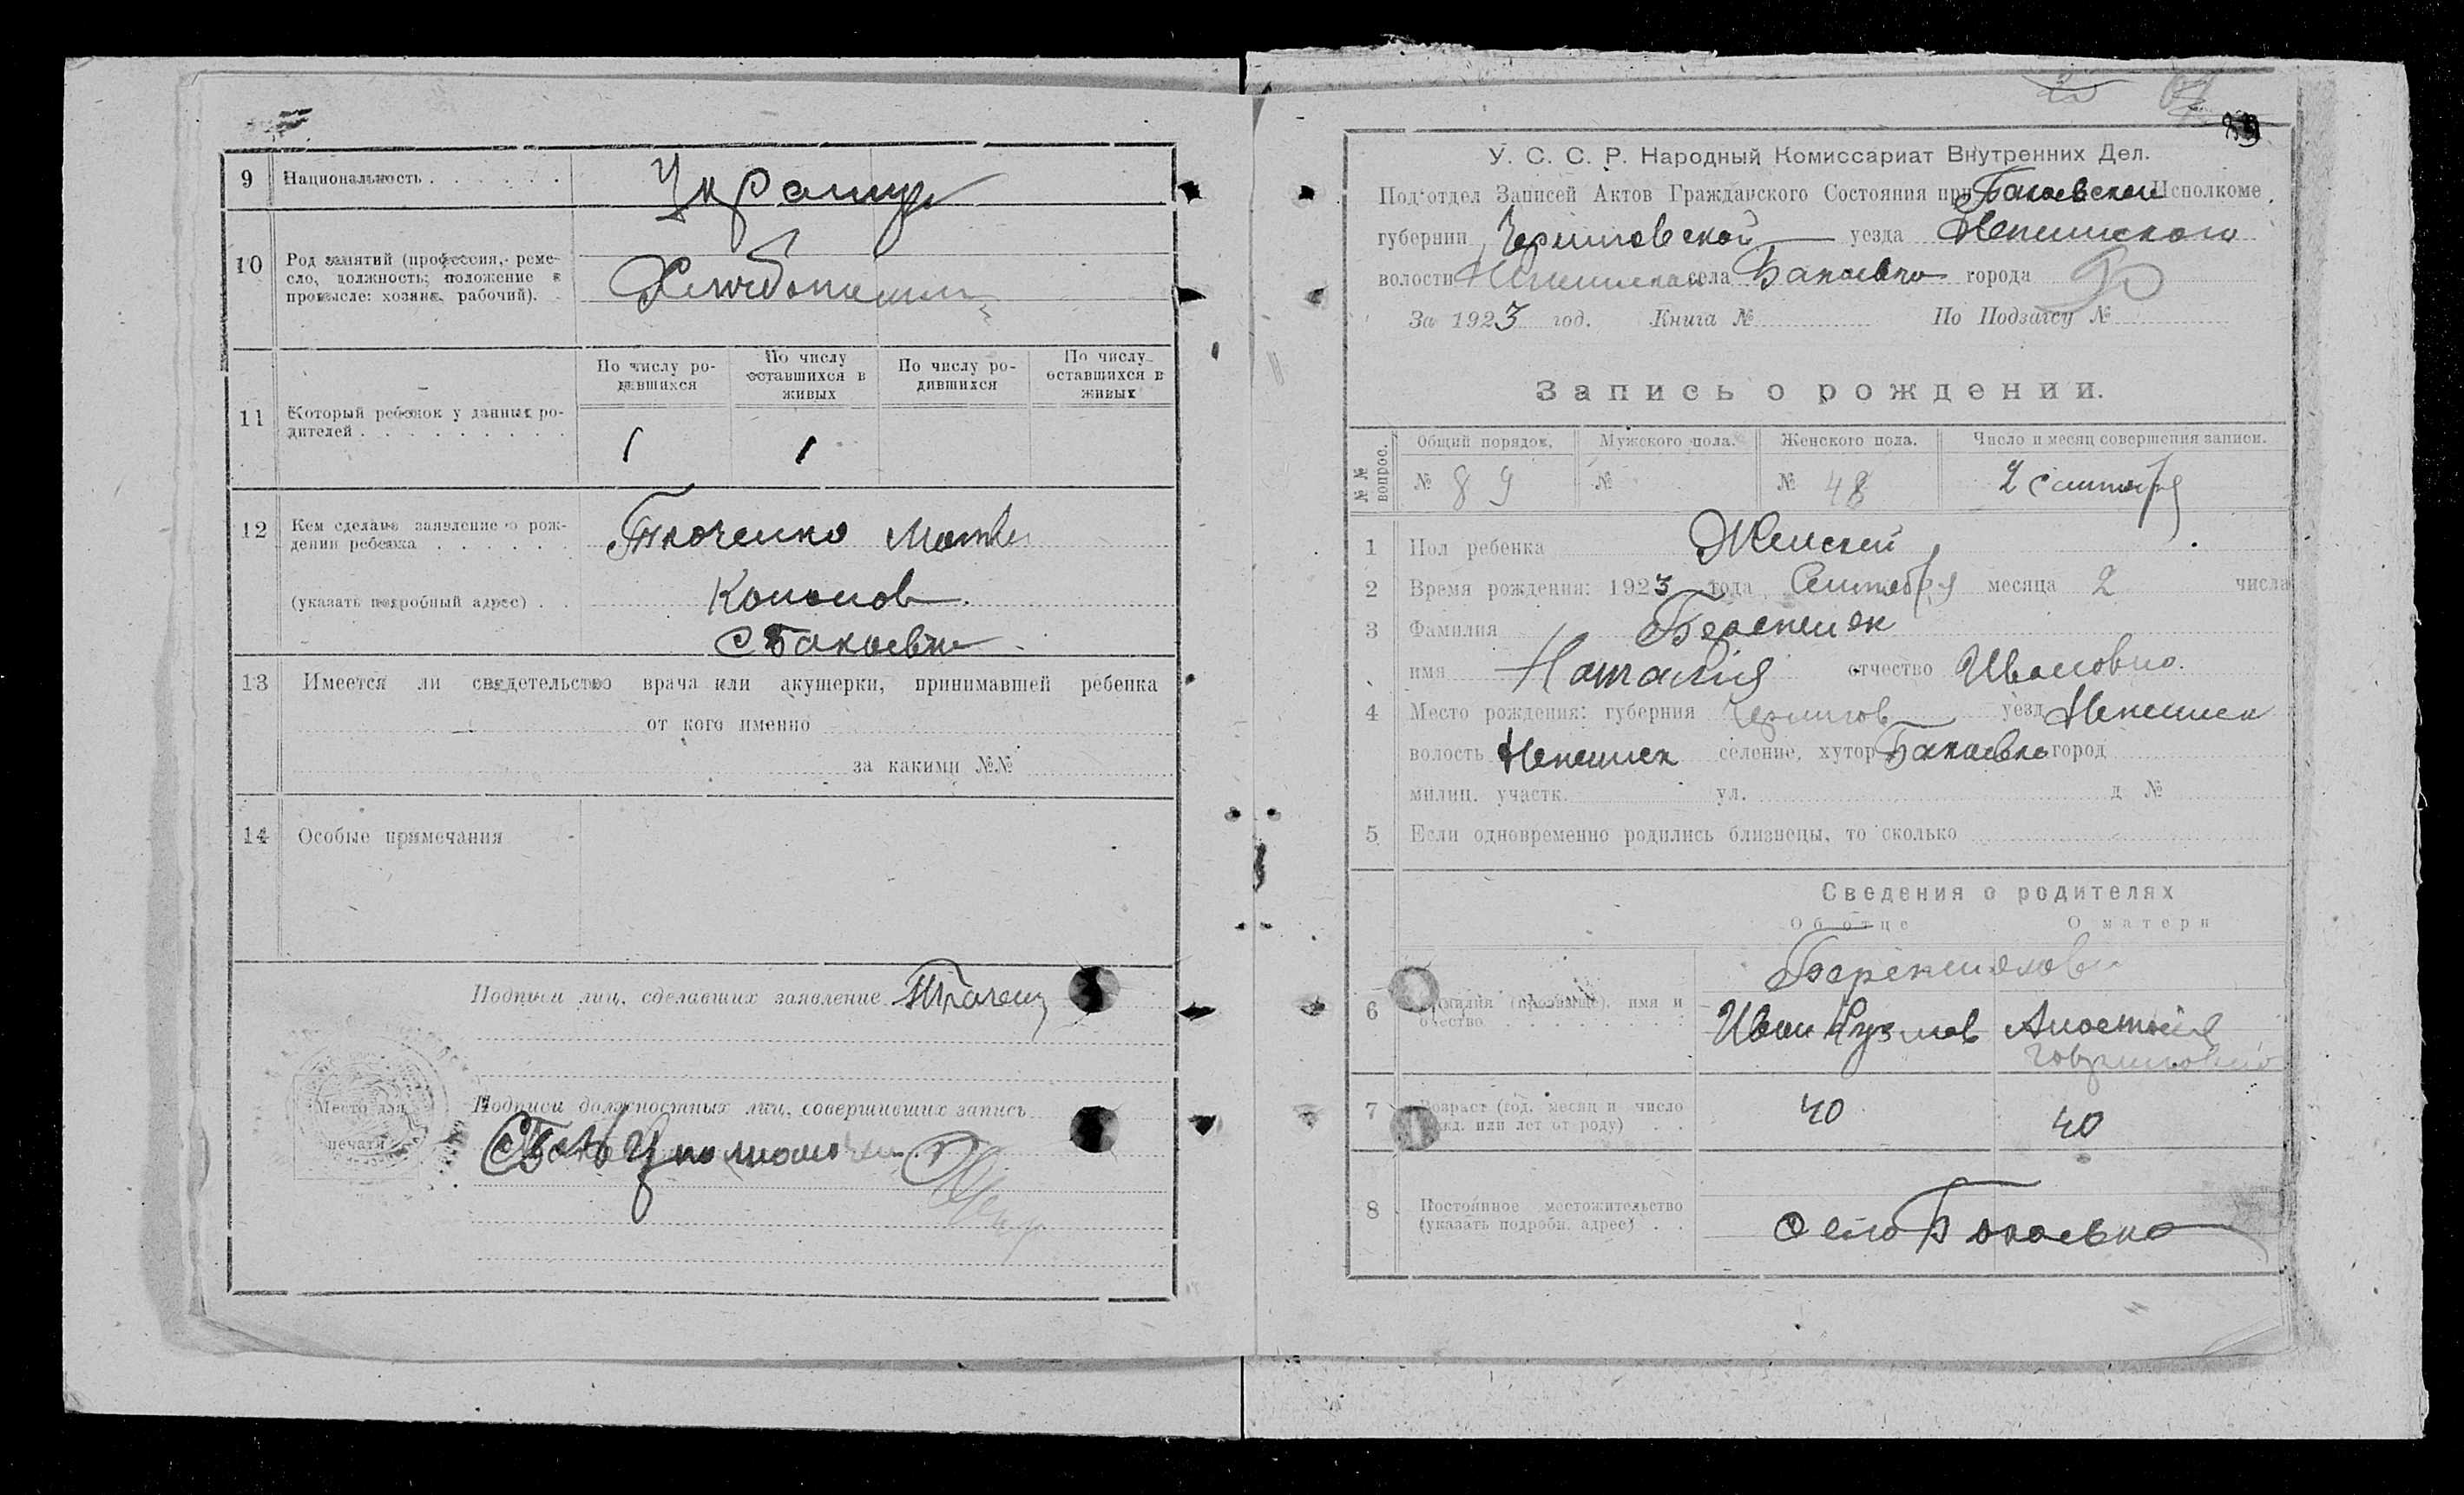 9 Национальность . . . . . . Украинц
10 Род занятий (профессия, реме-
сло, должность; положение в
промысле: хозяин, рабочий). . Хлебопашец
11 Который ребенок у данных ро-
дителей . . . . . . . . .
По числу ро-
дившихся
По числу
оставшихся в
живых
По числу ро-
дившихся
По числу
оставшихся в
живых
1 1
12 Кем сделано заявление о рож-
дении ребенка . . . . . . Ткаченко Матвей
(указать подробный адрес) . . Кононов
С Бакаевка
13 Имеется ли свидетельство врача или акушерки, принимавшей ребенка
от кого именно
за какими №№
14 Особые примечания
Подписи лиц, сделавших заявление Ткаченк
Место для
печати
Подписи должностных лиц, совершивших запись
У. С. С. Р. Народный Комиссариат Внутренних Дел.
Под'отдел Записей Актов Гражданского Состояния при Бакаевском Исполкоме
губернии Черниговской уезда
волости села Бакаевка города
За 1923 год. Книга № По Подзагсу №
Запись о рождении.
№№ вопрос.
Общий порядок. Мужского пола. Женского пола. Число и месяц совершения записи.
№ 89 № № 48 2 Сентября
1 Пол ребенка Женский
2 Время рождения: 1923 года Сентября месяца 2 числа
3 Фамилия
имя Наталия отчество Ивановна
4 Место рождения: губерния Чернигов уезд
волость селение, хутор Бакаевка город
милиц. участк. ул. д №
5 Если одновременно родились близнецы, то сколько
Сведения о родителях
Об отце О матери
6 Фамилия (прозвание), имя и
отчество . . . . . . . .
Иван Кузмов Анастасия
Гавриловна
7 Возраст (год, месяц и число
рожд. или лет от роду) . . 40 40
8 Постоянное местожительство
(указать подробн. адрес) . . село Бакаевка